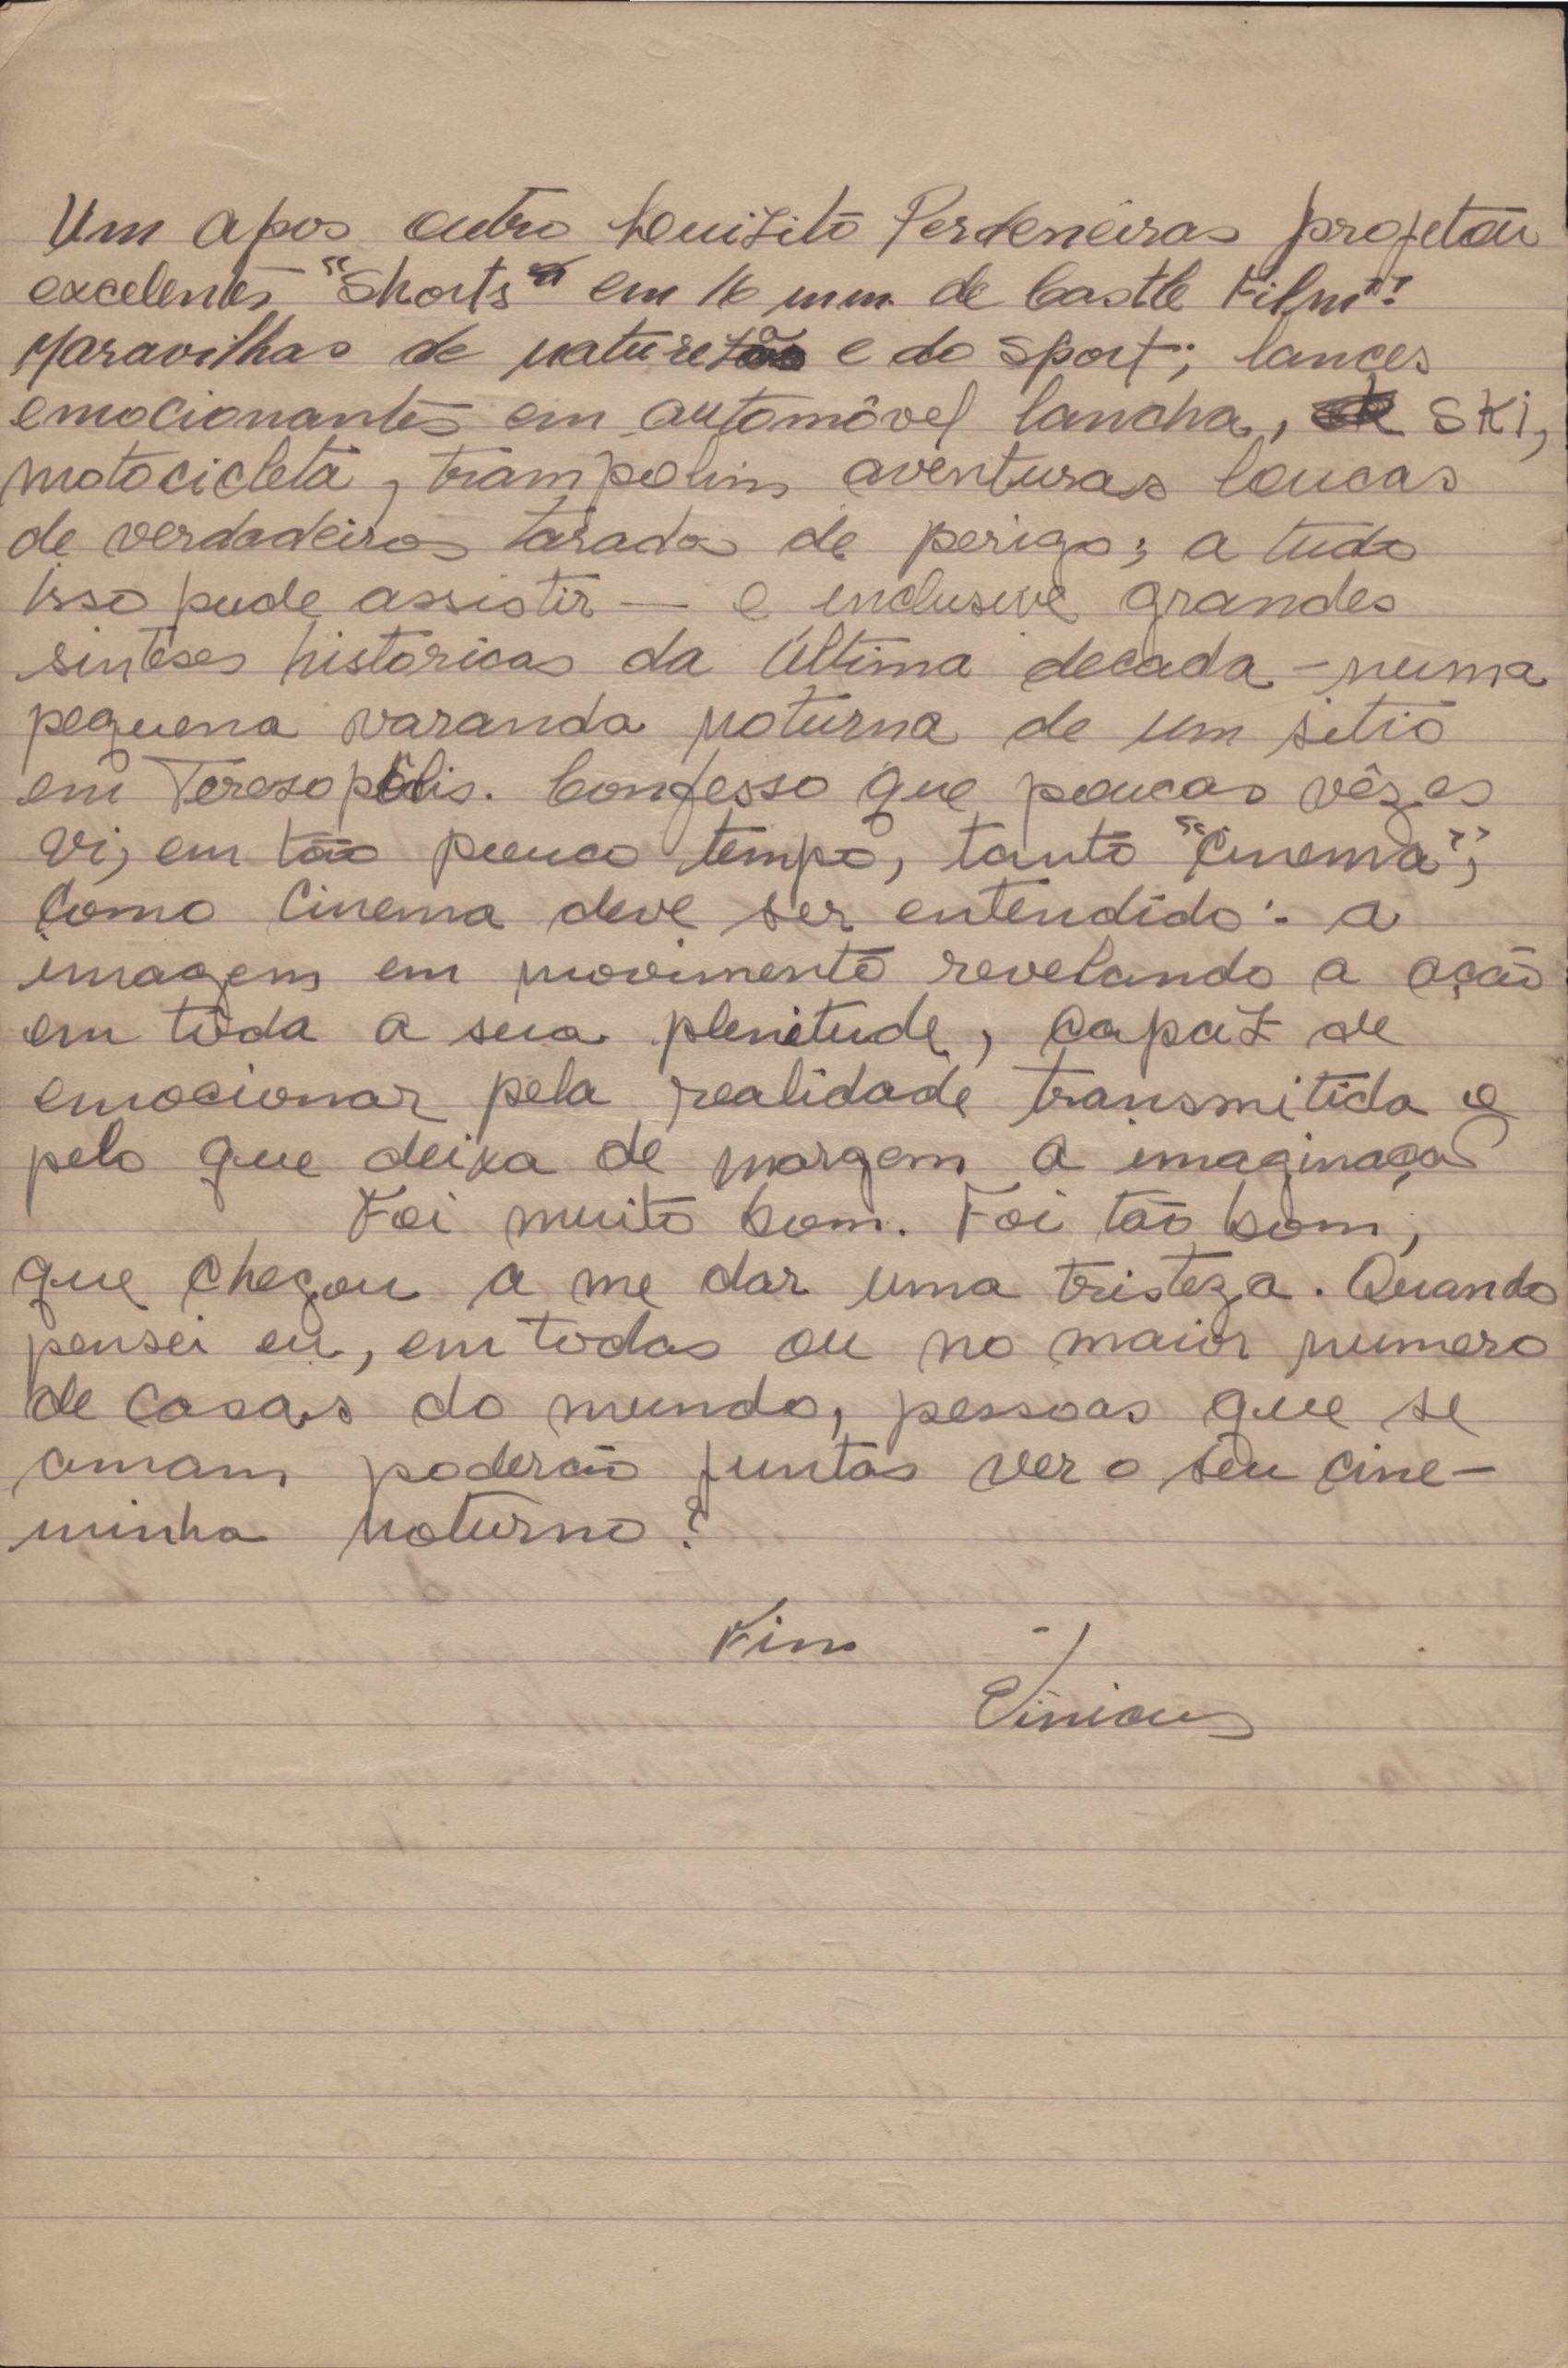 Um apos outro Luizito Perdeneiras projetou
excelentes "Shorts" em 16 mm. de Castle Film":
Maravilhas de natureza e do sport; lances
emocionantes em automôvel lancha, SKi,
motocicleta, trampolim aventuras loucas
de verdadeiros tarados de perigo; a tudo
isso pude assistir — e inclusive grandes
sinteses historicas da última decada - numa
pequena varanda noturna de um sitio
em Teresopolis. Confesso que poucas vêzes
vi, em tão pouco tempo, tanto "cinema",
como cinema deve ser entendido: a
imagem em movimento revelando a ação
em tôda a sua plenitude, capaz de
emocionar pela realidade transmitida e
pelo que deixa de margem a imaginação
Foi muito bom. Foi tão bom,
que chegou a me dar uma tristeza. Quando
pensei eu, em todas ou no maior numero
de casas do mundo, pessoas que se
amam poderão juntas ver o seu cine-
minha noturno?
Fim
Vinicius